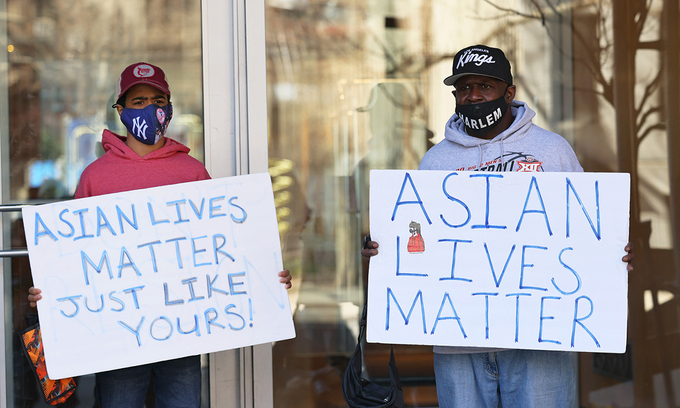 ASIAN LIVES
MATTER
JUST LIKE
YOURS!
NY
Kings
HARLEM
XII
ASIAN
LIVES
MATTER